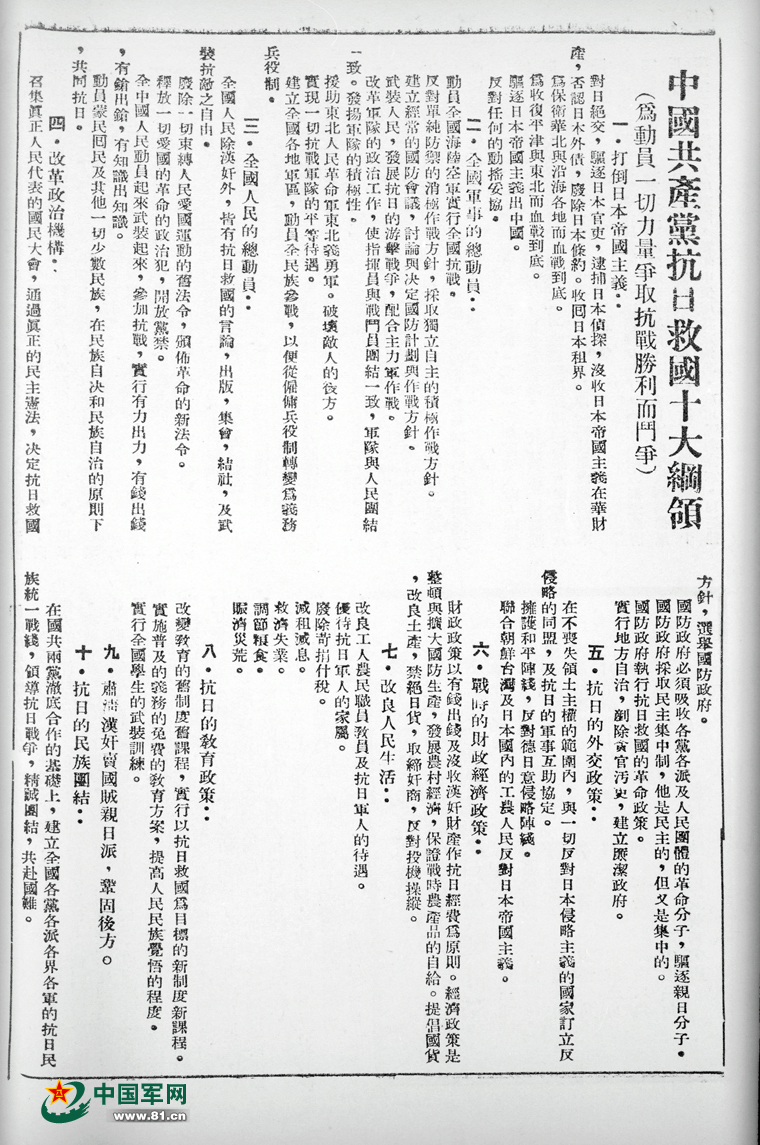 中國共產黨抗日救國十大綱領
(爲動員一切力量爭取抗戰勝利而鬥爭)
一・打倒日本帝國主義：
對日絕交，驅逐日本官吏，逮捕日本偵探，沒收日本帝國主義在華財
產，否認日本外債，廢除日本條約。收回日本租界。
爲保衛華北與沿海各地而血戰到底。
爲收復平津與東北而血戰到底。
驅逐日本帝國主義出中國。
反對任何的動搖妥協。
二・全國軍事的總動員：
動員全國海陸空軍實行全國抗戰。
反對單純防禦的消極作戰方針，採取獨立自主的積極作戰方針。
建立經常的國防會議，討論與決定國防計劃與作戰方針。
武裝人民，發展抗日的游擊戰爭，配合主力軍作戰。
改革軍隊的政治工作，使指揮員與戰鬥員團結一致，軍隊與人民團結
一致。發揚軍隊的積極性。
援助東北人民革命軍東北義勇軍。破壞敵人的後方。
實現一切抗戰軍隊的平等待遇。
建立全國各地軍區，動員全民族參戰，以便從僱傭兵役制轉變爲義務
兵役制。
三・全國人民的總動員：
全國人民除漢奸外，皆有抗日救國的言論，出版，集會，結社，及武
裝抗敵之自由。
廢除一切束縛人民愛國運動的舊法令，頒佈革命的新法令。
釋放一切愛國的革命的政治犯，開放黨禁。
全中國人民動員起來武裝起來，參加抗戰，實行有力出力，有錢出錢
，有鎗出鎗，有知識出知識。
動員蒙民回民及其他一切少數民族，在民族自决和民族自治的原則下
，共同抗日。
四・改革政治機構：
召集眞正人民代表的國民大會，通過眞正的民主憲法，决定抗日救國
方針，選舉國防政府。
國防政府必須吸收各黨各派及人民團體的革命分子，驅逐親日分子。
國防政府採取民主集中制，他是民主的，但又是集中的。
國防政府執行抗日救國的革命政策。
實行地方自治，剷除貪官污吏，建立廉潔政府。
五・抗日的外交政策：
在不喪失領土主權的範圍內，與一切反對日本侵略主義的國家訂立反
侵略的同盟，及抗日的軍事互助協定。
擁護和平陣綫，反對德日意侵略陣綫。
聯合朝鮮台灣及日本國內的工農人民反對日本帝國主義。
六・戰時的財政經濟政策：
財政政策以有錢出錢及沒收漢奸財產作抗日經費爲原則。經濟政策是
整頓與擴大國防生產，發展農村經濟，保證戰時農產品的自給。提倡國貨
，改良土產，禁絕日貨，取締奸商，反對投機操縱。
七・改良人民生活：
改良工人農民職員敎員及抗日軍人的待遇。
優待抗日軍人的家屬。
廢除苛捐什稅。
減租減息。
救濟失業。
調節粮食。
賑濟災荒。
八・抗日的敎育政策：
改變敎育的舊制度舊課程，實行以抗日救國爲目標的新制度新課程。
實施普及的義務的免費的敎育方案，提高人民民族覺悟的程度。
實行全國學生的武裝訓練。
九・肅清漢奸賣國賊親日派，鞏固後方。
十・抗日的民族團結：
在國共兩黨澈底合作的基礎上，建立全國各黨各派各界各軍的抗日民
族統一戰綫，領導抗日戰爭，精誠團結，共赴國難。
中国军网
www.81.cn